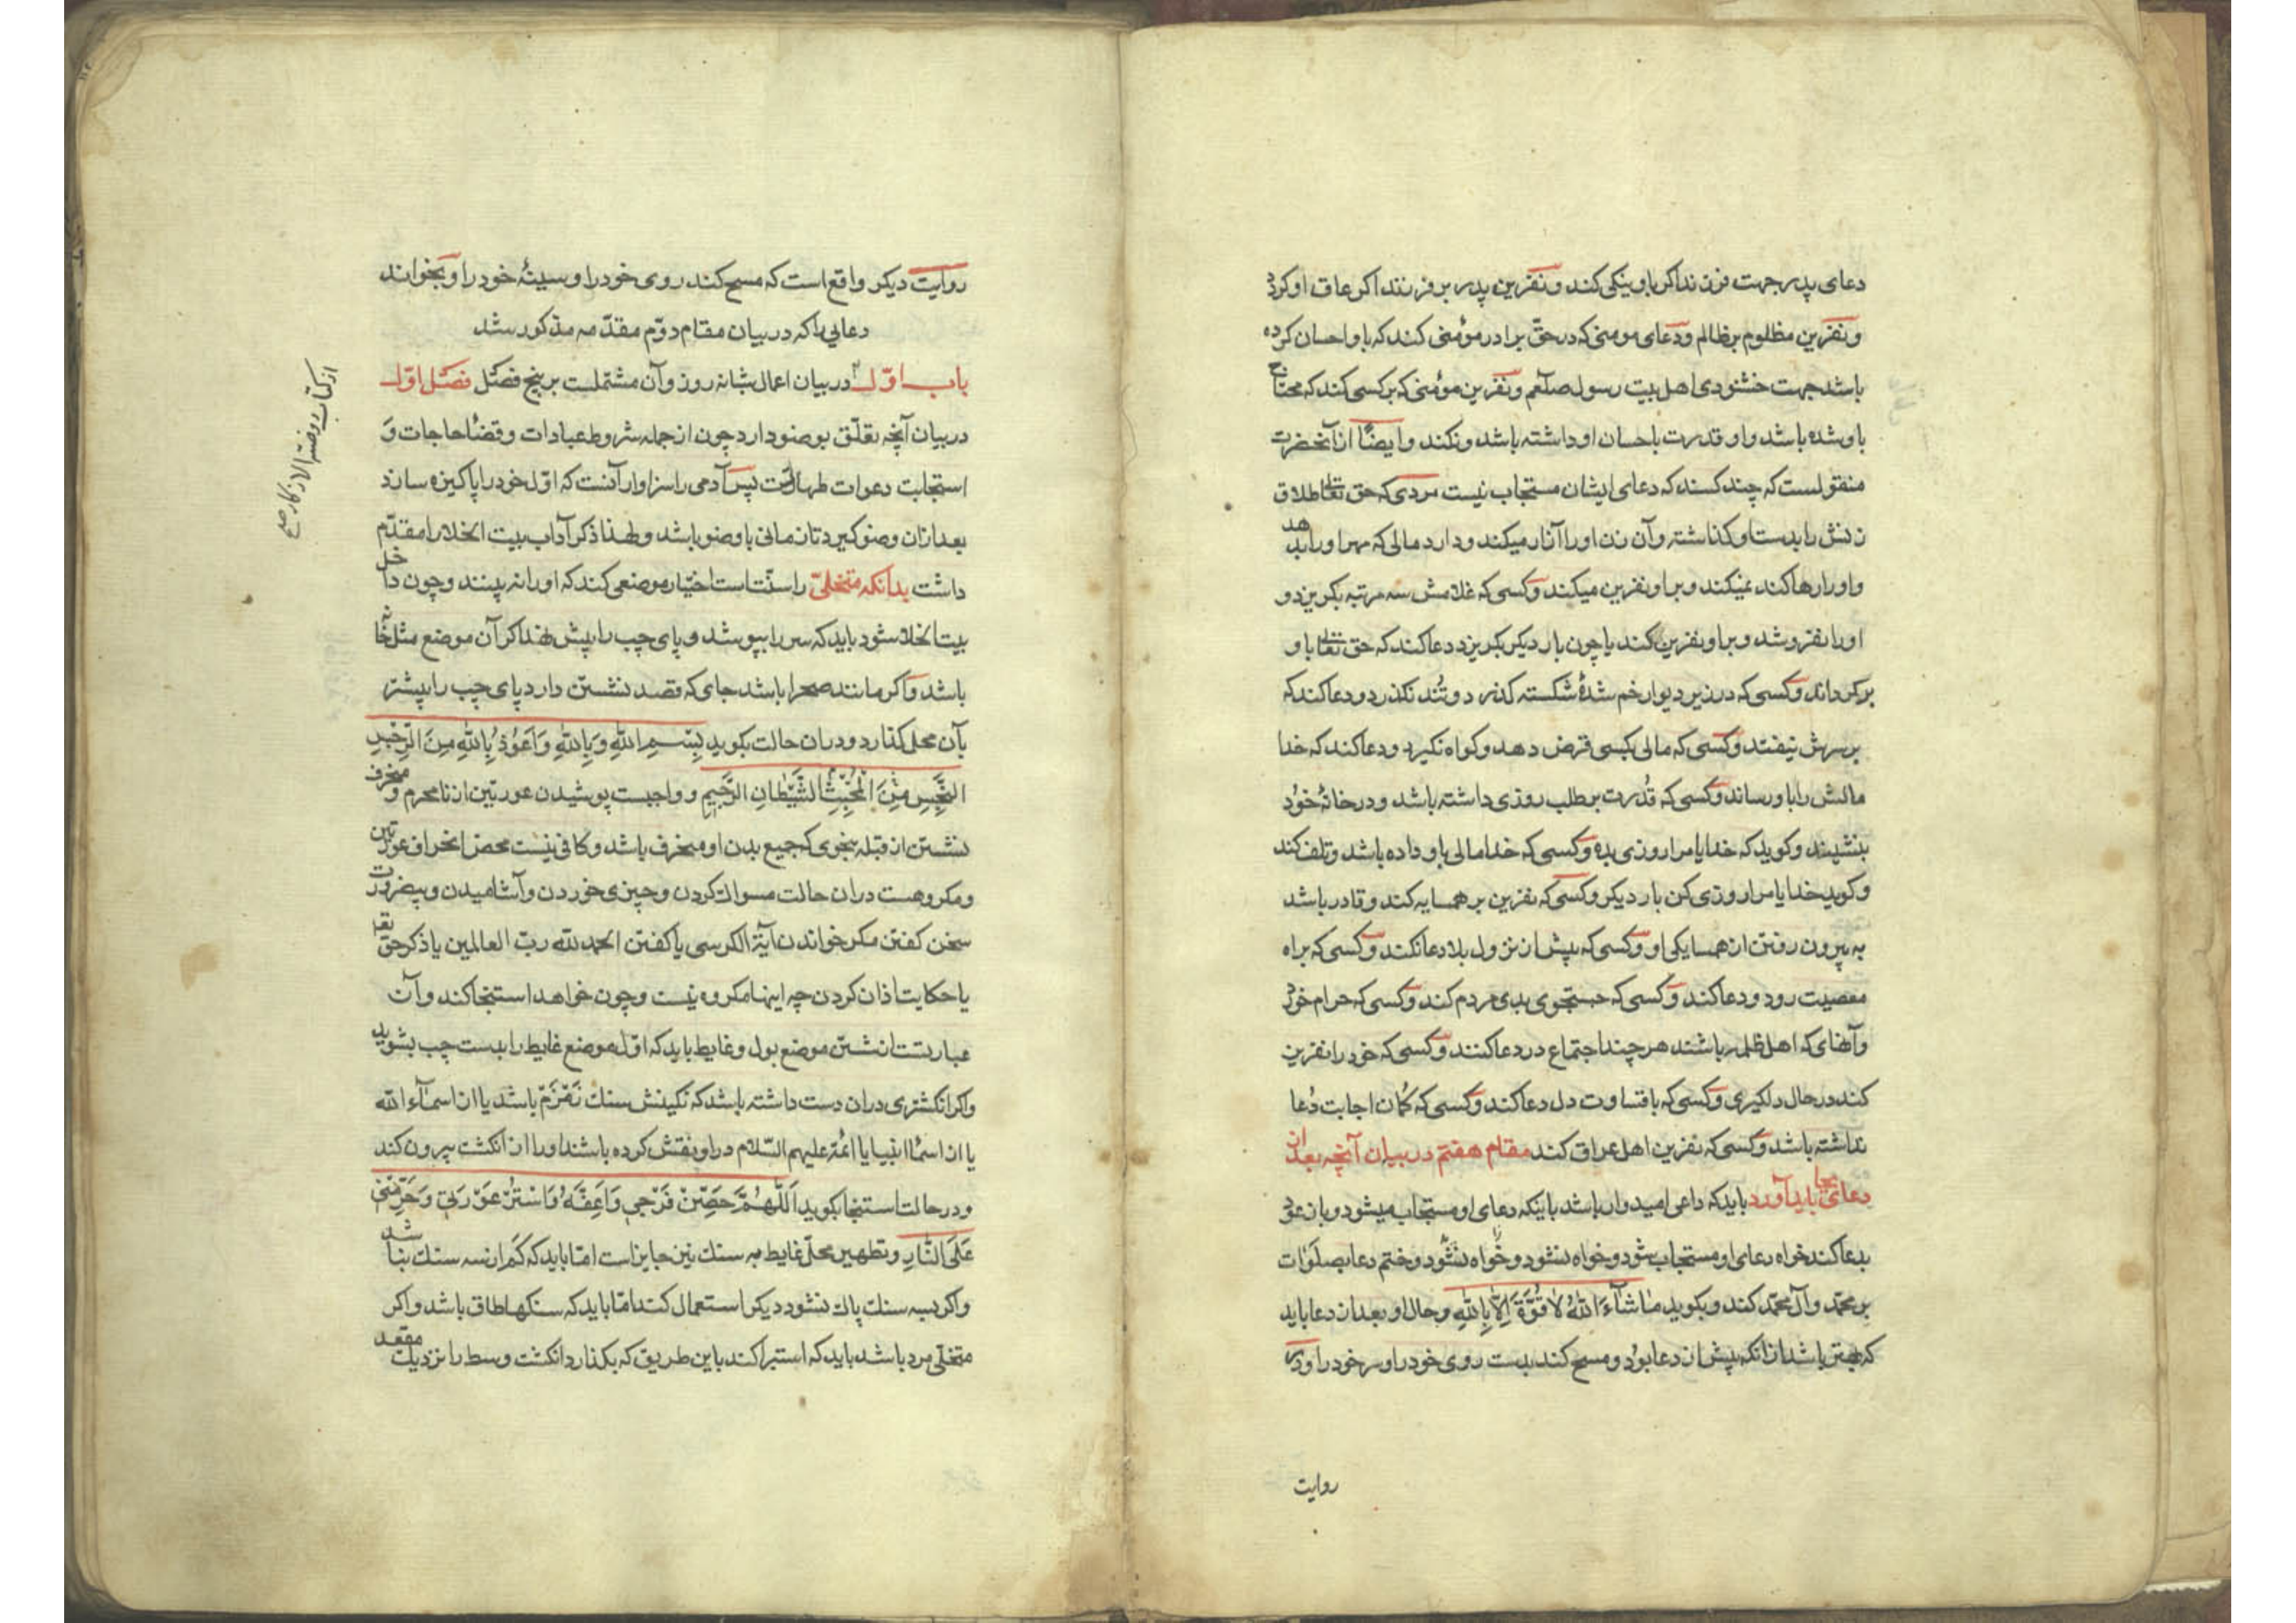 دعای پدر جهت فرزند اگر باو نیکی کند و نفرین پدر بر فرزند اگر عاق او کردد
و نفرین مظلوم بر ظالم و دعای مومنی که در حق برادر مؤمنی کند که باو احسان کرده
باشد جهت خشنودی اهل بیت رسول صلعم و نفرین مؤمنی که بر کسی کند که محتاج
باو شده باشد و او قدرت باحسان او داشته باشد و نکند و ایضًا از آنحضرت
منقولست که چند کسند که دعای ایشان مستجاب نیست مردی که حق تعالی طلاق
زنش را بدست او کذاشته و آن زن او را آزار میکند و دارد مالی که مهر او را بدهد
و او را رها کند نمیکند و بر او نفرین میکند و کسی که غلامش سه مرتبه بکریزد و
او را نفروشد و بر او نفرین کند یا چون بار دیکر بکریزد دعا کند که حق تعالی باو
برکرداند و کسی که در زیر دیوار خم شدهٔ شکسته کذرد و تُند نکذرد و دعا کند که
بر سرش نیفتد و کسی که مالی بکسی قرض دهد و کواه نکیرد و دعا کند که خدا
مالش را باو رساند و کسی که قدرت بر طلب روزی داشته باشد و در خانهٔ خود
بنشیند و کوید که خدایا مرا روزی بده و کسی که خدا مالی باو داده باشد و تلف کند
و کوید خدایا مرا روزی کن بار دیکر و کسی که نفرین بر همسایه کند و قادر باشد
به بیرون رفتن از همسایکی او و کسی که پیش از نزول بلا دعا نکند و کسی که براه
معصیت رود و دعا کند و کسی که جستجوی بدی مردم کند و کسی که حرام خورد
و آنهای که اهل ظلم باشند هر چند اجتماع در دعا کنند و کسی که خود را نفرین
کند در حال دلکیری و کسی که با قساوت دل دعا کند و کسی که کمان اجابت دعا
نداشته باشد و کسی که نفرین اهل عراق کند مقام هفتم در بیان آنچه بعد از
دعا بجای باید آورد باید که داعی امیدوار باشد باینکه دعای او مستجاب میشود و باز عود
بدعا کند خواه دعای او مستجاب شود و خواه نشود و خواه نشود و ختم دعا بصلوات
بر محمّد و آل محمّد کند و بکوید مَا شَآءَ اللّٰهُ لَا قُوَّةَ اِلَّا بِاللّٰهِ و حال او بعد از دعا باید
که بهتر باشد از آنکه پیش از دعا بود و مسح کند بدست روی خود را و سر خود را و در
روایت
روایت دیکر واقع است که مسح کند روی خود را و سینهٔ خود را و بخواند
دعایی را که در بیان مقام دوّم مقدّمه مذکور شد
باب اوّل در بیان اعمال شبانه روز و آن مشتملست بر پنج فصل فصل اوّل
در بیان آنچه تعلّق بوضو دارد چون از جمله شروط عبادات و قضاء حاجات و
استجابت دعوات طهارتست پس آدمی را سزاوار آنست که اوّل خود را پاکیزه سازد
بعد از آن وضو کیرد تا زمانی با وضو باشد و لهذا ذکر آداب بیت الخلا را مقدّم
داشت بدانکه متخلّی را سنّت است اختیار موضعی کند که او را نه بینند و چون داخل
بیت الخلا شود باید که سر را بپوشد و پای چپ را پیش نهد اکر آن موضع مثل خانه
باشد و اکر مانند صحرا باشد جای که قصد نشستن دارد پای چپ را پیشتر
بآن محل کذارد و در آن حالت بکوید بِسْمِ اللّٰهِ وَ بِاللّٰهِ وَ اَعُوْذُ بِاللّٰهِ مِنَ الرِّجْسِ
النَّجِسِ الْخَبِيثِ الْمُخْبِثِ الشَّيْطَانِ الرَّجِيمِ و واجبست پوشیدن عورتین از نامحرم و منحرف
نشستن از قبله بنحوی که جمیع بدن او منحرف باشد و کافی نیست محض انحراف عورتین
و مکروهست در آن حالت مسواک کردن و چیزی خوردن و آشامیدن و بیضرورت
سخن کفتن مکر خواندن آیة الکرسی یا کفتن الحمد لله ربّ العالمین یا ذکر حق تعالی
یا حکایت اذان کردن چه اینها مکروه نیست و چون خواهد استنجا کند و آن
عبارتست از شستن موضع بول و غایط باید که اوّل موضع غایط را بدست چپ بشوید
و اکر انکشتری در آن دست داشته باشد که نکینش سنک زمزم باشد یا از اسمآء الله
یا از اسماء انبیا یا ائمّه علیهم السّلام در او نقش کرده باشند او را از انکشت بیرون کند
و در حالت استنجا بکوید اَللّٰهُمَّ حَصِّنْ فَرْجِي وَاَعِفَّهُ وَاسْتُرْ عَوْرَتِي وَحَرِّمْنِي
عَلَى النَّارِ و تطهیر محلّ غایط به سنک نیز جایز است امّا باید که کم از سه سنک نباشد
و اکر بسه سنک پاک نشود دیکر استعمال کند امّا باید که سنکها طاق باشد و اکر
متخلّی مرد باشد باید که استبرا کند باین طریق که بکذارد انکشت وسط را نزدیک مقعد
از کتاب روضة الاذکار